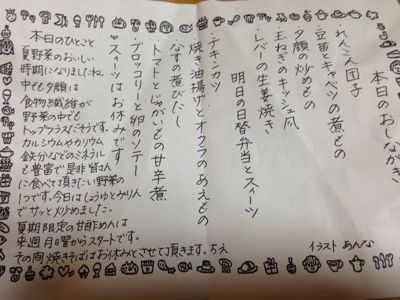 本日のおしながき
れんこん団子
豆苗とキャベツの煮もの
夕顔の炒めもの
玉ねぎのキッシュ風
レバーの生姜焼き
明日の日替弁当とスイーツ
チキンカツ
焼き油揚げとオクラのあえもの
なすの煮びだし
トマトとじゃがいもの甘辛煮
ブロッコリーと卵のソテー
♥スイーツはお休みです
本日のひとこと
夏野菜のおいしい
時期になりましたね。
中でも夕顔は
食物繊維が
野菜の中でも
トップクラスだそうです。
カルシウムやカリウム
鉄分などのミネラル
も豊富で是非皆さん
に食べて頂きたい野菜の
1つです。今日はしょうゆとみりん
でサッと炒めました。
夏期限定の甘酢めんは
来週月曜からスタートです。
その間焼きそばはお休みとさせて頂きます。ちえ
イラスト あんな